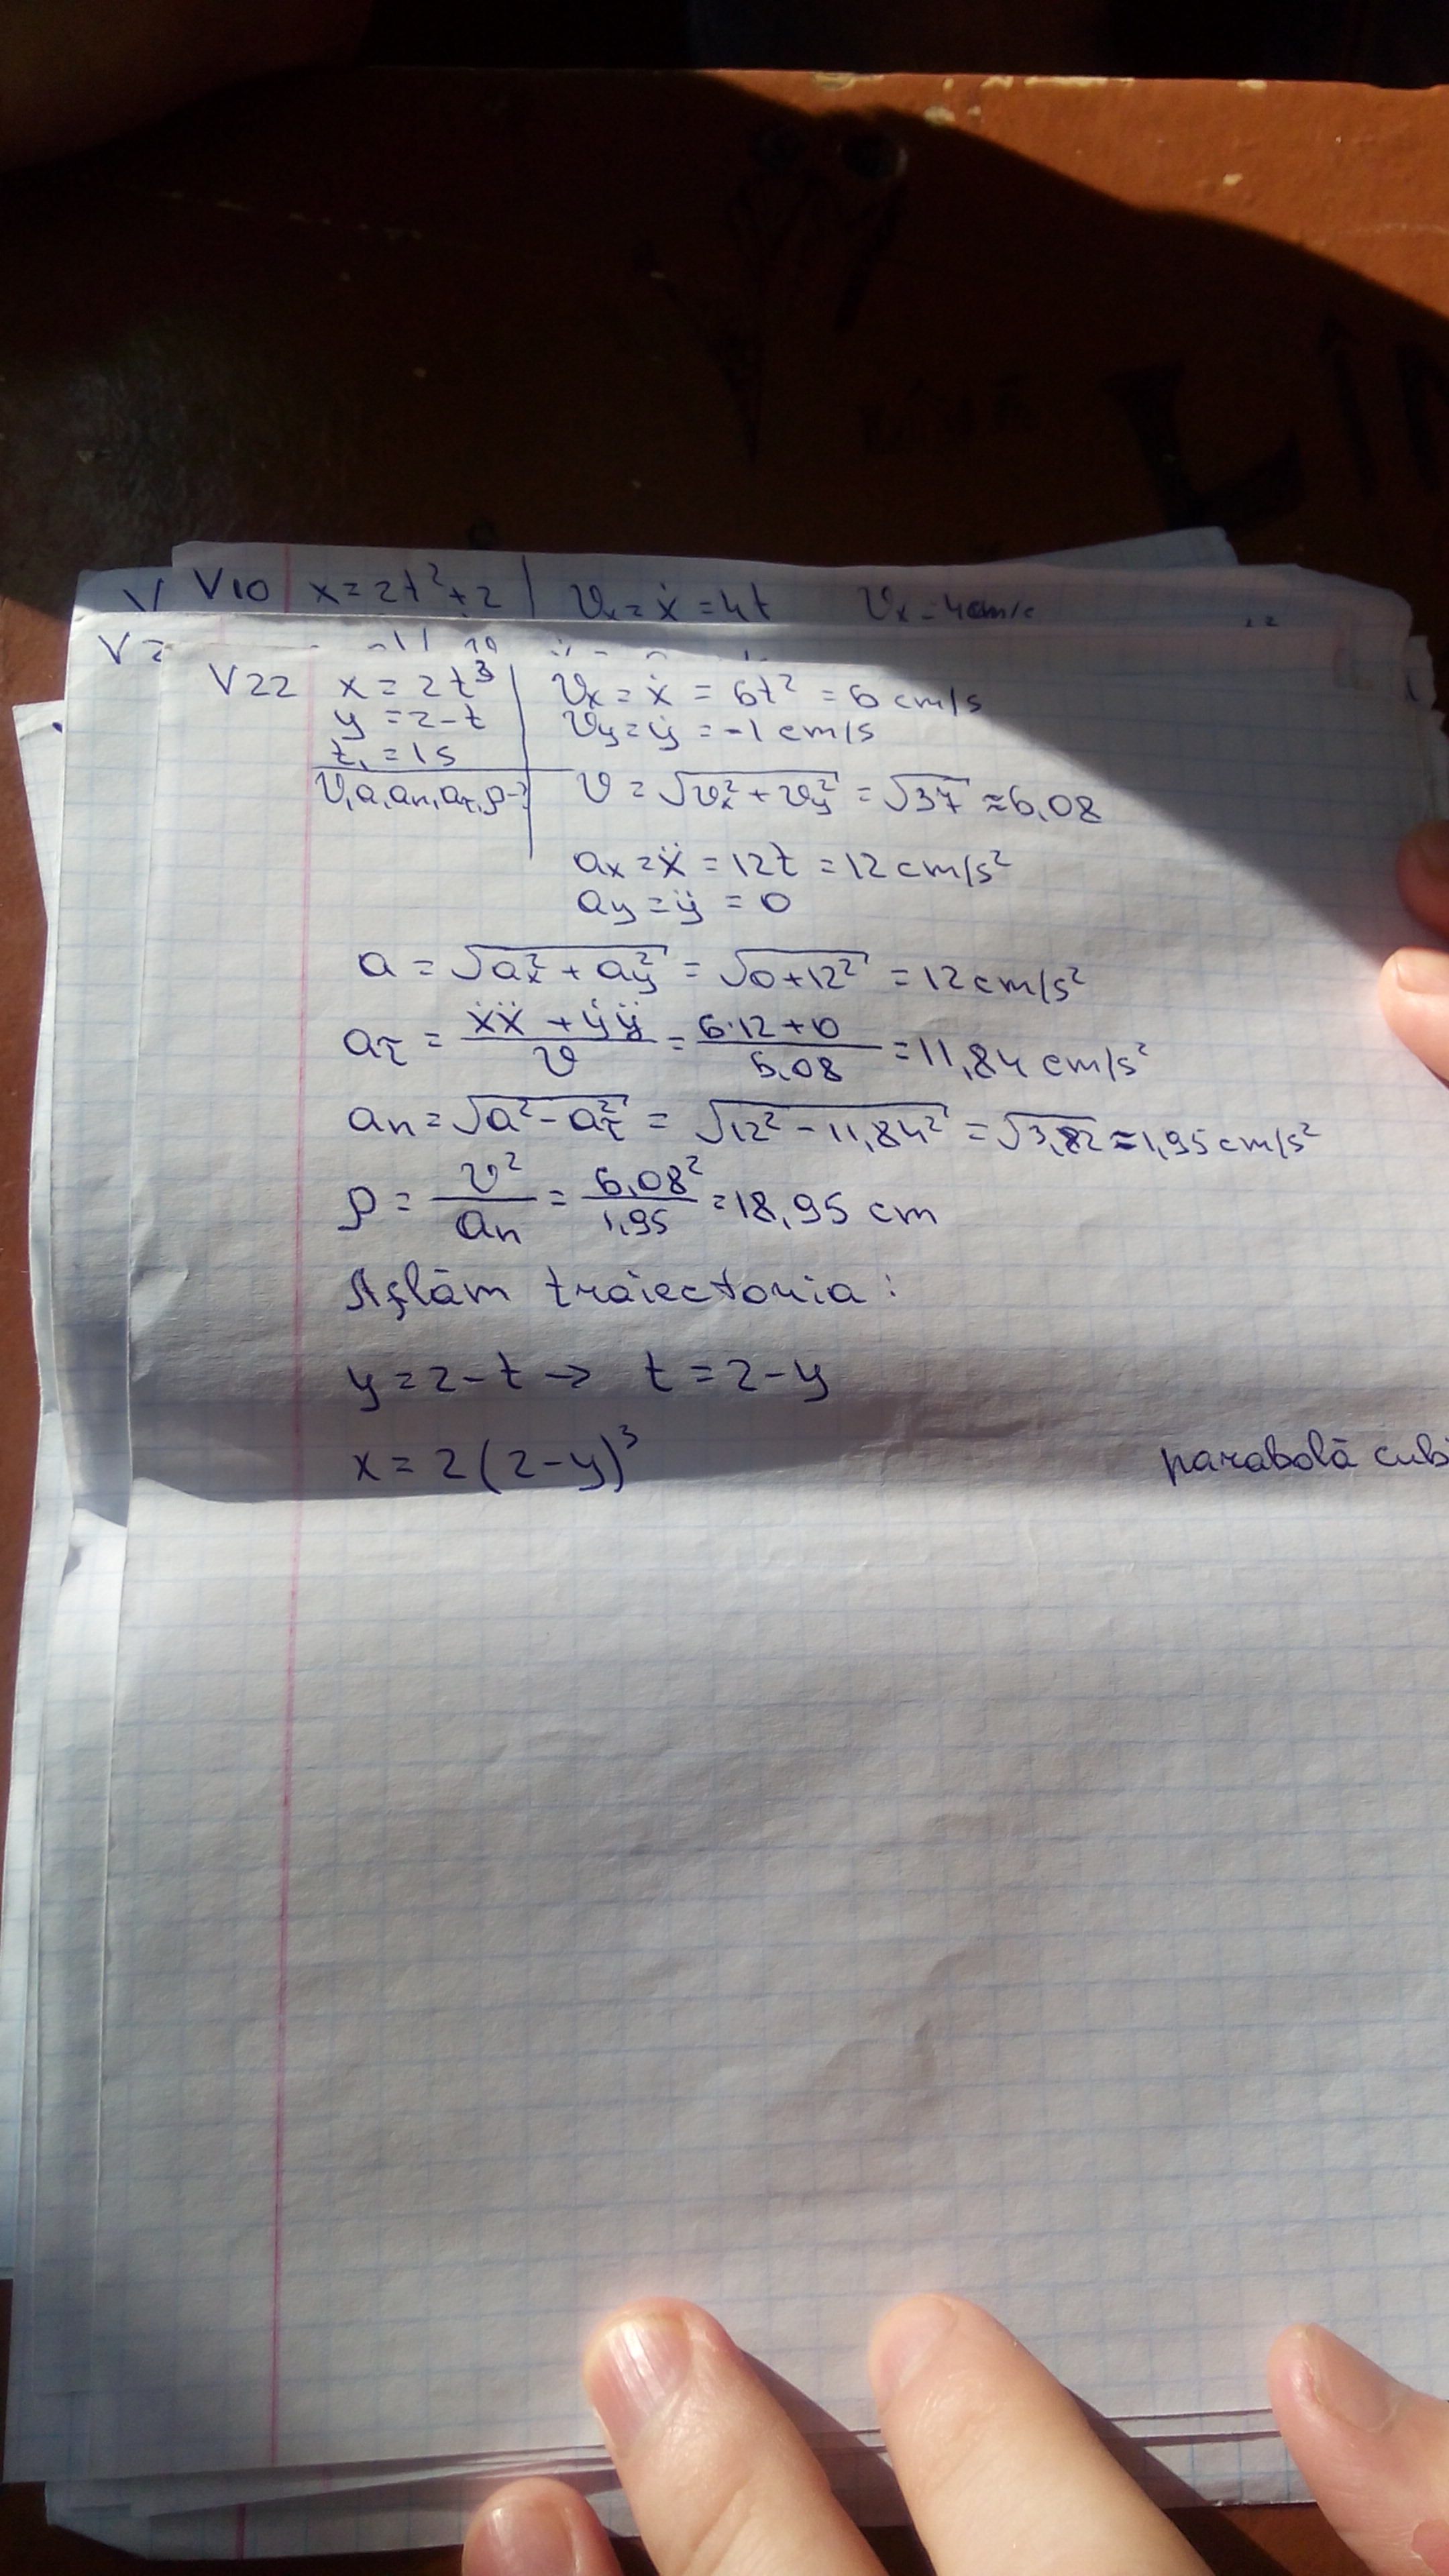 V10 x=2t²+2 | vx=ẋ=4t vx=4cm/s
V22 x=2t³ | vx=ẋ=6t²=6cm/s
y=2-t | vy=ẏ=-1cm/s
t₁=1s
v,a,an,aτ,ρ-? | v=√(vx²+vy²)=√37≈6,08
ax=ẍ=12t=12cm/s²
ay=ÿ=0
a=√(ax²+ay²)=√(0+12²)=12cm/s²
aτ=(ẋẍ+ẏÿ)/v=(6·12+0)/6,08=11,84cm/s²
an=√(a²-aτ²)=√(12²-11,84²)=√3,82≈1,95cm/s²
ρ=v²/an=6,08²/1,95=18,95 cm
Aflăm traiectoria:
y=2-t→ t=2-y
x=2(2-y)³ parabolă cubi